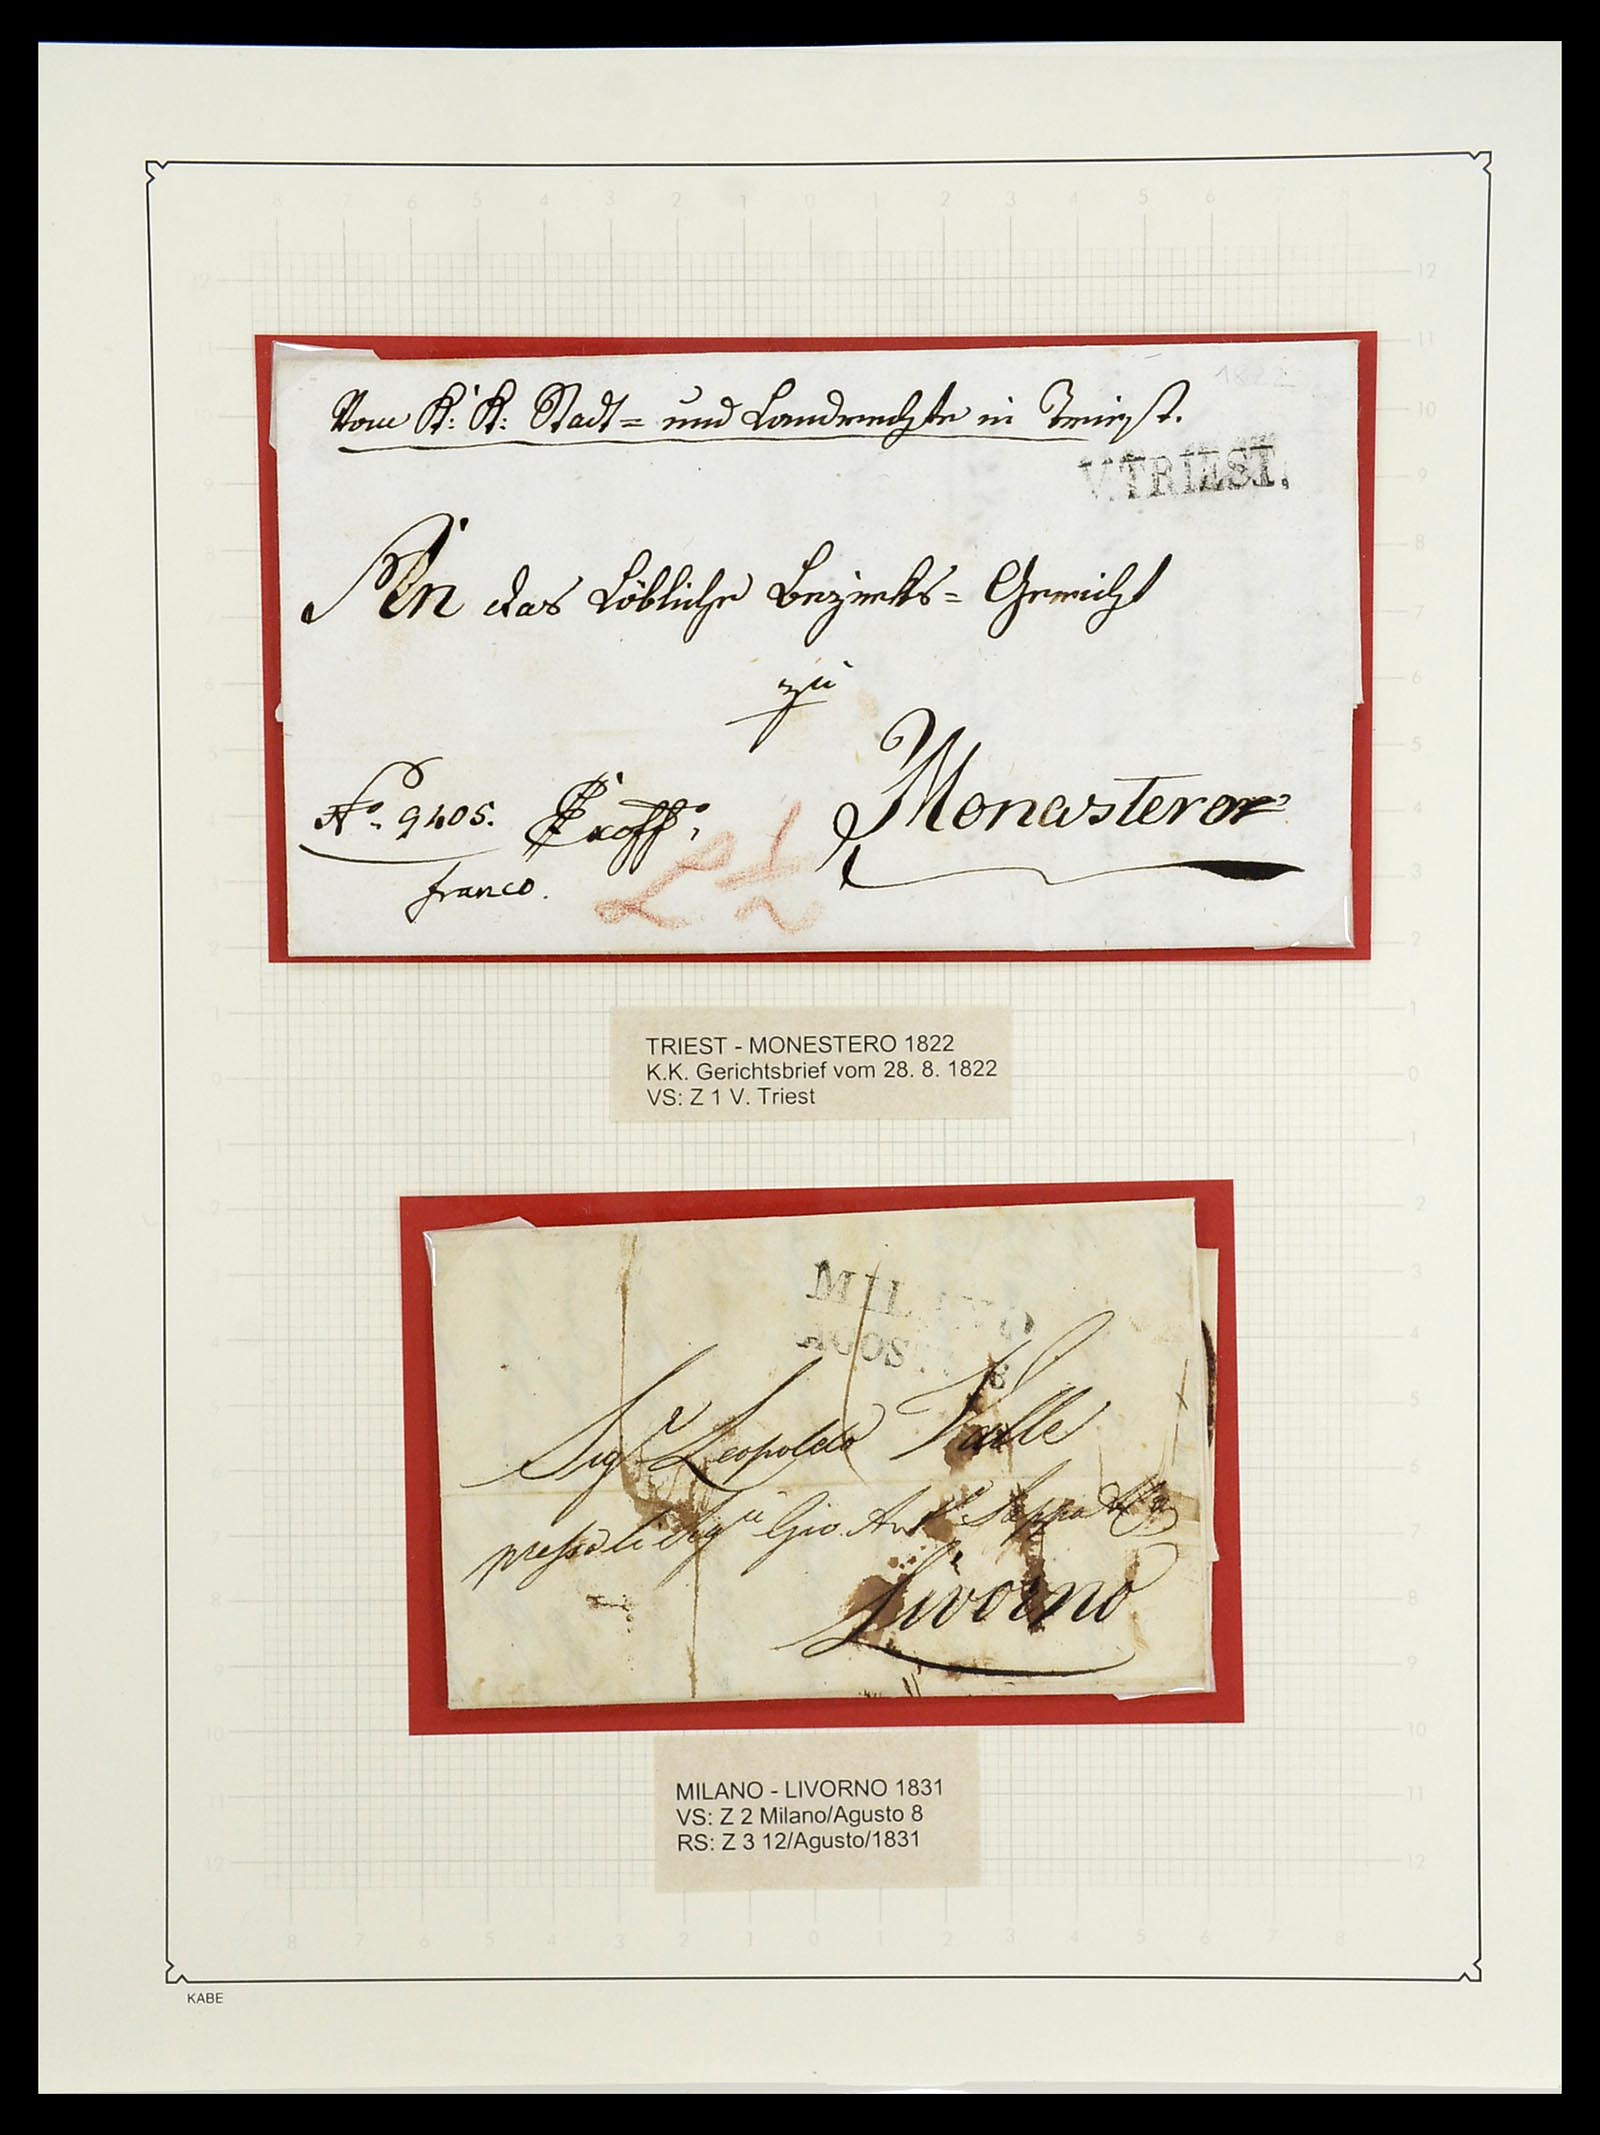 1822
Vom K: K: Stadt= und Landrechte in Triest.
V. TRIEST.
An das Löbliche Bezirks= Gericht
zu
Monastero
No. 9405. Ex offo.
franco.
2 1/2
TRIEST - MONESTERO 1822
K.K. Gerichtsbrief vom 28. 8. 1822
VS: Z 1 V. Triest
MILANO
AGOSTO 8
Sigr Leopoldo Valle
presso li Sigri Gio. Ant.
Livorno
MILANO - LIVORNO 1831
VS: Z 2 Milano/Agusto 8
RS: Z 3 12/Agusto/1831
KABE